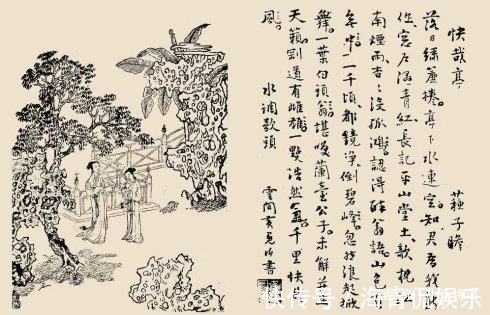 快哉亭 蘇子瞻
落日繡簾捲亭下水連空知君爲我新
作窓戶濕青紅長記平山堂上欹枕江
南煙雨杳杳沒孤鴻認得醉翁語山色有
無中一千頃都鏡淨倒碧峰忽然浪起掀
舞一葉白頭翁堪笑蘭臺公子未解莊生
天籟剛道有雌雄一點浩然氣千里快哉
風 水調歌頭 雲間 書
快传号 海青侃娱乐